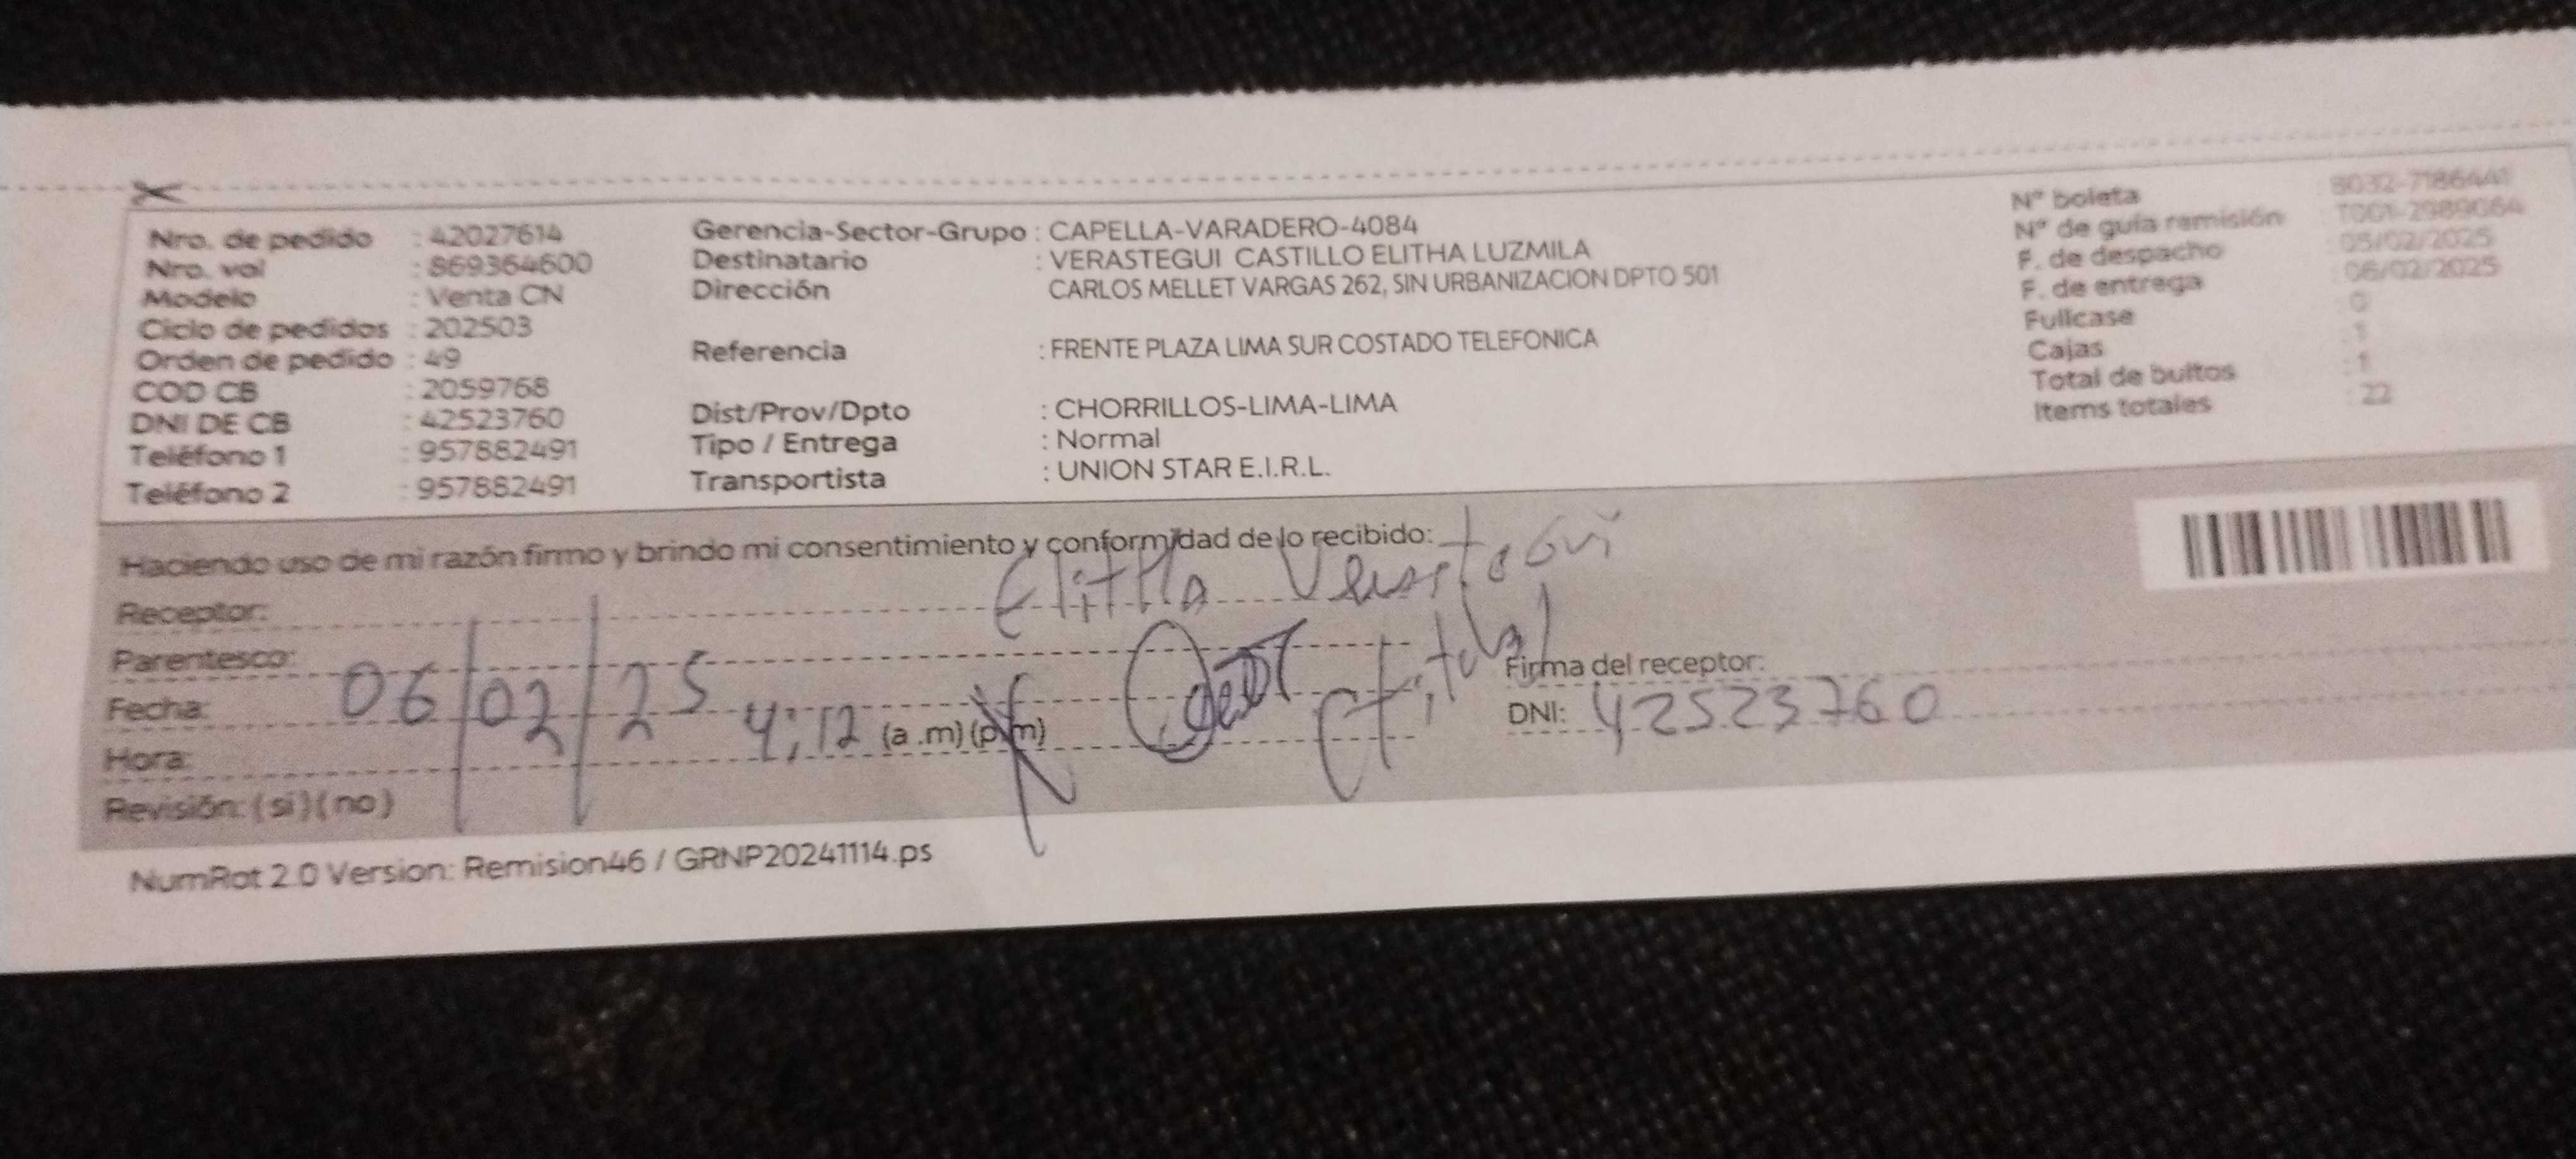 Nro. de pedido : 42027614
Nro. val : 869364600
Modelo : Venta CN
Ciclo de pedidos : 202503
Orden de pedido : 49
COD CB : 2059768
DNI DE CB : 42523760
Teléfono 1 : 957882491
Teléfono 2 : 957882491
Gerencia-Sector-Grupo : CAPELLA-VARADERO-4084
Destinatario : VERASTEGUI CASTILLO ELITHA LUZMILA
Dirección CARLOS MELLET VARGAS 262, SIN URBANIZACION DPTO 501
Referencia : FRENTE PLAZA LIMA SUR COSTADO TELEFONICA
Dist/Prov/Dpto : CHORRILLOS-LIMA-LIMA
Tipo / Entrega : Normal
Transportista : UNION STAR E.I.R.L.
N° boleta
N° de guía remisión : T001-2989064
F. de despacho : 05/02/2025
F. de entrega : 06/02/2025
Fullcase : 0
Cajas : 1
Total de bultos : 1
Items totales : 22
Haciendo uso de mi razón firmo y brindo mi consentimiento y conformidad de lo recibido:
Receptor: Elitha Verastegui
Parentesco: titular
Fecha: 06/02/25
Hora: 4:12 (a .m) (p.m)
Revisión: (si) (no)
Firma del receptor:
DNI: 42523760
NumRot 2.0 Version: Remision46 / GRNP20241114.ps